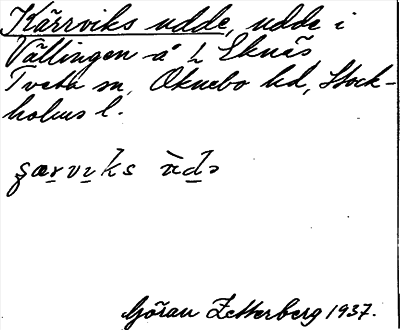 Kärrviks udde, udde i
Vällingen å Eknäs
Tveta sn, Öknebo hd, Stock-
holms l.
Göran Zetterberg 1937.